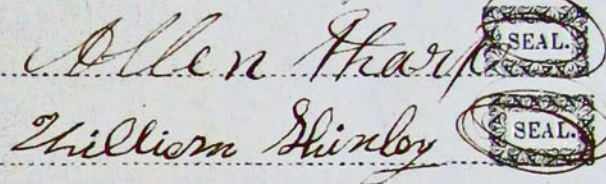 Allen Tharp SEAL.
William Shinley SEAL.